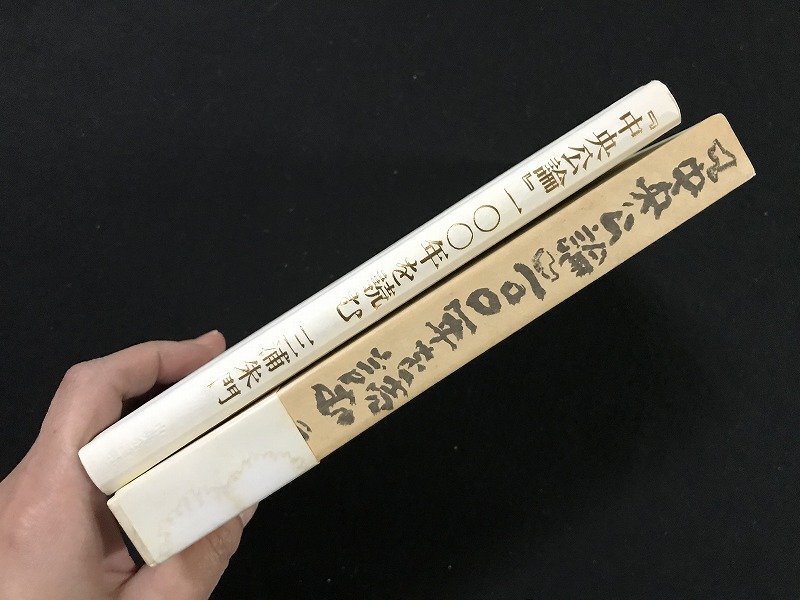 『中央公論』一〇〇年を読む 三浦朱門
『中央公論』一〇〇年を読む